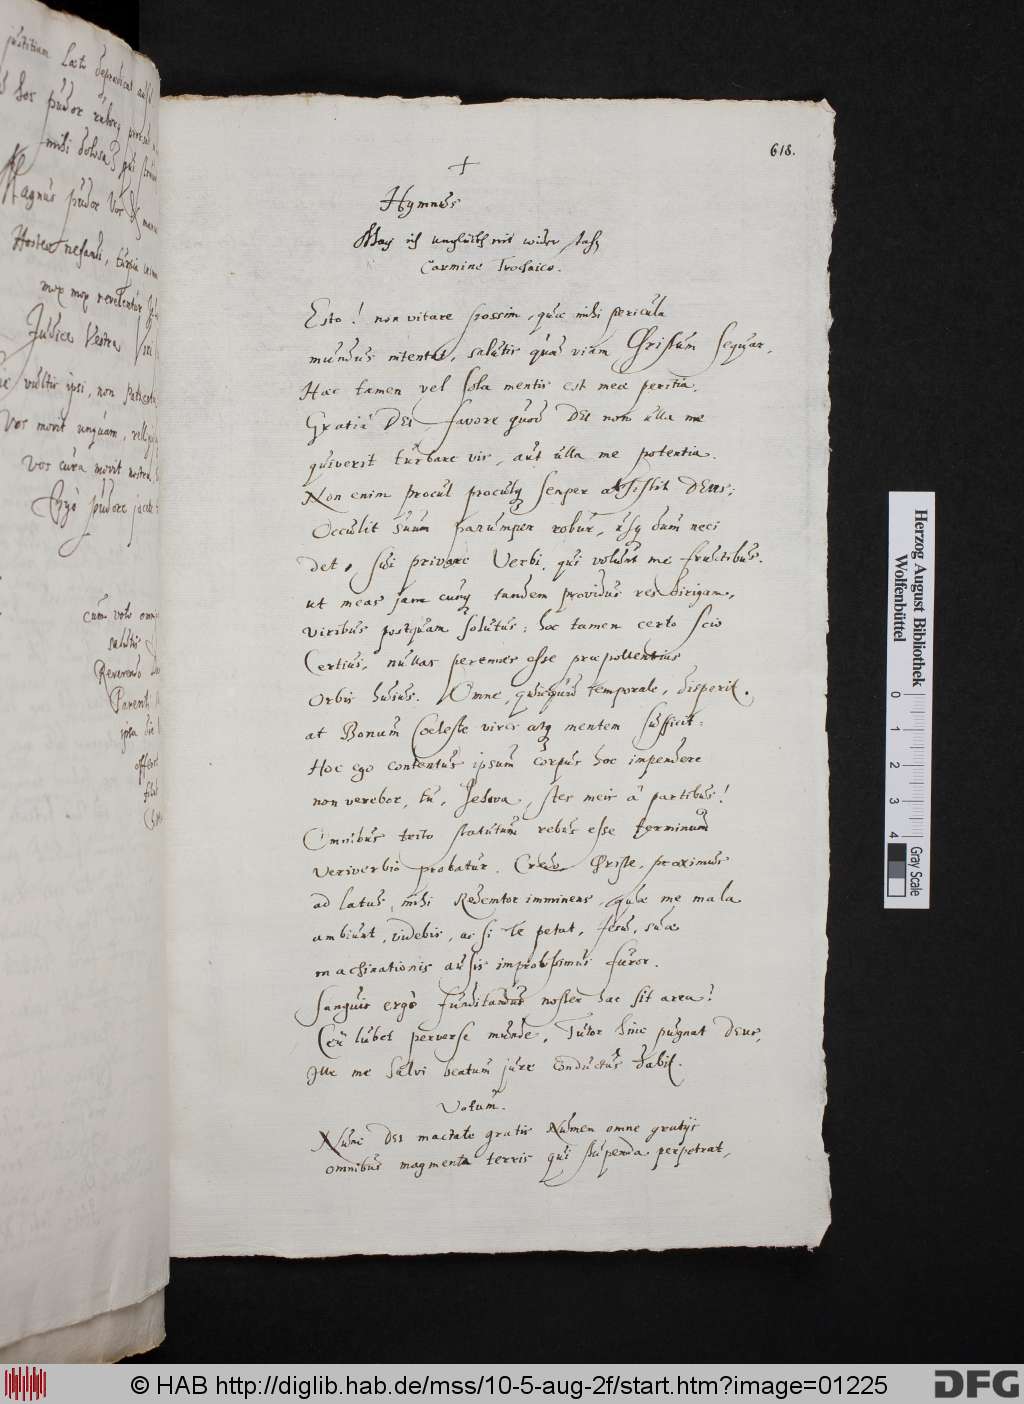 618.
+
Hymnus
Mag ich unglück nit wider stahn
Carmine Trochaico.
Esto! non vitare possim, quae mihi pericula
mundus intentat, salutis quod viam Christum sequar,
Haec tamen vel sola mentis est meae peritia,
Gratiâ DEI, favore quod DEI non ulla me
quiverit turbare vis, aut ulla me potentia.
Non enim procul proculq semper absistit DEus;
Occulit suum parumper robur, usq dum neci
det, sui privare Verbi, qui volunt me fructibus.
ut meas jam cunq tandem providus res dirigam,
viribus postquam solutus: hoc tamen certo scio
Certius, nullas perennes esse praepollentius
orbis huius. Omne, quicquid temporale, disperit.
at Bonum Coeleste vires atq mentem sufficit:
Hoc ego contentus ipsum corpus hoc impendere
non verebor, tu, Jehova, stes meis â partibus!
Omnibus trito statutum rebus esse terminum
veriverbio probatur. Credo Christe, proximus
ad latus, mihi Redemtor imminens, quae me mala
ambiunt, videbis, ac si Te petat, Jesu, suae
machinationis ausis improbissimus furor.
Sanguis ergò funditandus noster hac sit area!
Ceu lubet perverse munde, Tutor hinc pugnat DEus,
Ille me salvi beatum jure conductus dabit.
Votum.
Nunc DEI mactate gratis Numen omne gratijs
omnibus magmenta terris qui stupenda perpetrat,
justitiam
hos pudor
mihi dolosa qui
Magnus pudor Vos
Hostea nefandi, turpia
mox mox reverentur
Judica Vestra
vultis ipsi, non
Vos movit unquam,
Vos cura movit nostra
Ergò pudore jacet
cum voto
salutis
Reverendo
Parenti
ipsa
Herzog August Bibliothek
Wolfenbüttel
0 1 2 3 4
Gray Scale
© HAB http://diglib.hab.de/mss/10-5-aug-2f/start.htm?image=01225
DFG